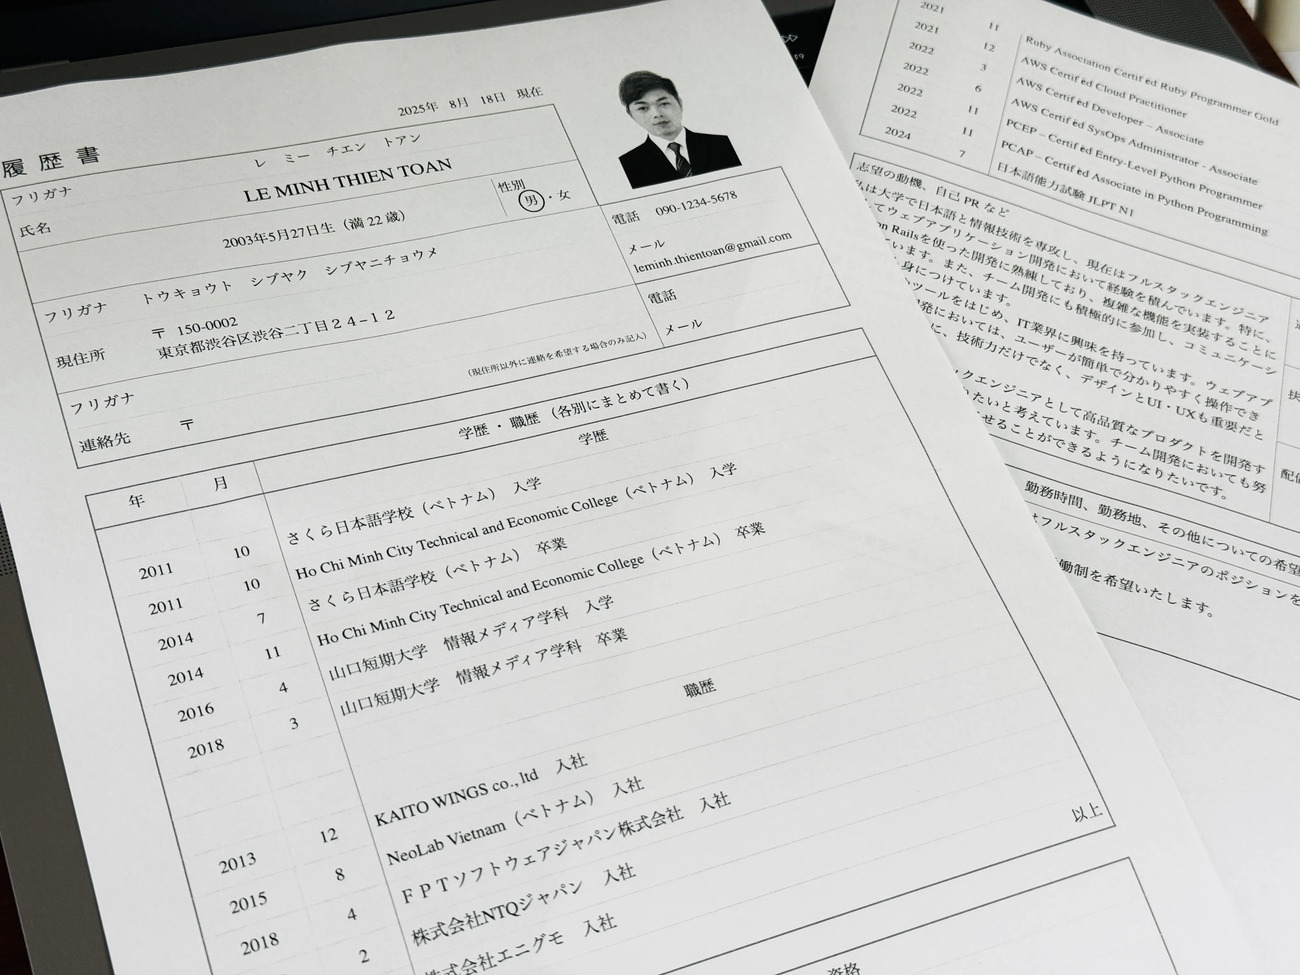 2025年 8月 18日 現在
履歴書
フリガナ レ ミー チエン トアン
氏名 LE MINH THIEN TOAN
2003年5月27日生（満 22 歳）
性別
男・女
フリガナ トウキョウト シブヤク シブヤニチョウメ
現住所 〒 150-0002
東京都渋谷区渋谷二丁目２４−１２
電話 090-1234-5678
メール
leminh.thientoan@gmail.com
フリガナ
連絡先 〒
（現住所以外に連絡を希望する場合のみ記入）
電話
メール
年 月 学歴・職歴（各別にまとめて書く）
学歴
2011 10 さくら日本語学校（ベトナム） 入学
2011 10 Ho Chi Minh City Technical and Economic College（ベトナム） 入学
2014 7 さくら日本語学校（ベトナム） 卒業
2014 11 Ho Chi Minh City Technical and Economic College（ベトナム） 卒業
2016 4 山口短期大学 情報メディア学科 入学
2018 3 山口短期大学 情報メディア学科 卒業
職歴
2013 12 KAITO WINGS co., ltd 入社
2015 8 NeoLab Vietnam（ベトナム） 入社
2018 4 ＦＰＴソフトウェアジャパン株式会社 入社
2 株式会社NTQジャパン 入社
株式会社エニグモ 入社
以上
資格
2021 11 Ruby Association Certified Ruby Programmer Gold
2021 12 AWS Certified Cloud Practitioner
2022 3 AWS Certified Developer – Associate
2022 6 AWS Certified SysOps Administrator - Associate
2022 11 PCEP – Certified Entry-Level Python Programmer
2022 11 PCAP – Certified Associate in Python Programming
2024 7 日本語能力試験 JLPT N1
志望の動機、自己 PR など
私は大学で日本語と情報技術を専攻し、現在はフルスタックエンジニア
してウェブアプリケーション開発において経験を積んでいます。特に、
on Railsを使った開発に熟練しており、複雑な機能を実装することに
います。また、チーム開発にも積極的に参加し、コミュニケーシ
身につけています。
ツールをはじめ、IT業界に興味を持っています。ウェブアプ
開発においては、ユーザーが簡単で分かりやすく操作でき
に、技術力だけでなく、デザインとUI・UXも重要だと
ックエンジニアとして高品質なプロダクトを開発す
りたいと考えています。チーム開発においても努
せることができるようになりたいです。
勤務時間、勤務地、その他についての希望
フルスタックエンジニアのポジションを
働制を希望いたします。